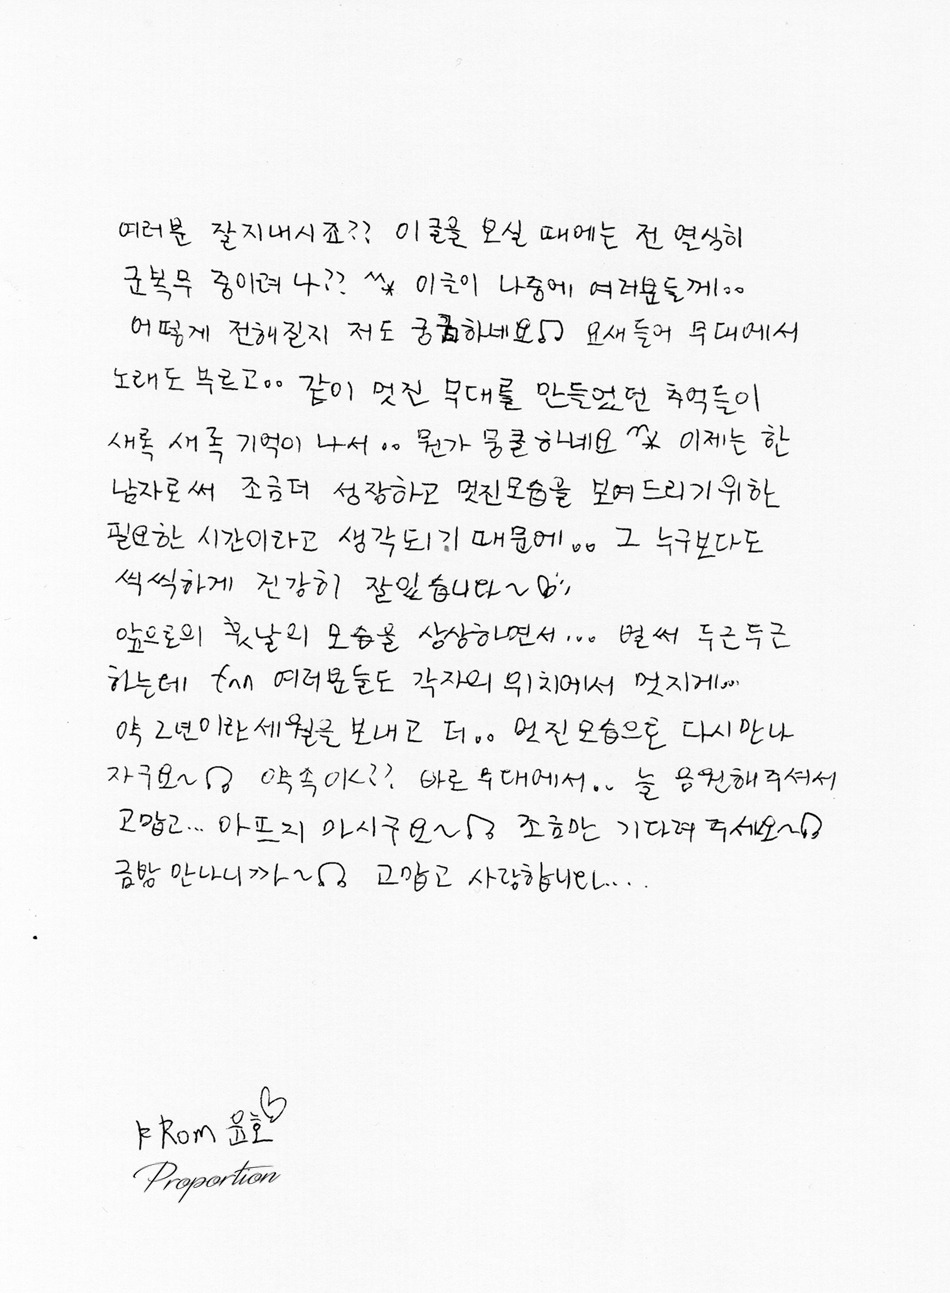 여러분 잘지내시죠?? 이글을 보실 때에는 전 열심히
군복무 중이려나?? ^^* 이글이 나중에 여러분들께..
어떻게 전해질지 저도 궁금하네요♫ 요새들어 무대에서
노래도 부르고.. 같이 멋진 무대를 만들었던 추억들이
새록 새록 기억이 나서.. 뭔가 뭉클하네요 ^^* 이제는 한
남자로써 조금더 성장하고 멋진모습을 보여드리기위한
필요한 시간이라고 생각되기 때문에.. 그 누구보다도
씩씩하게 건강히 잘있습니다~
앞으로의 훗날의 모습을 상상하면서... 벌써 두근두근
하는데 여러분들도 각자의 위치에서 멋지게...
약 2년이란세월을 보내고 더.. 멋진모습으로 다시만나
자구요~♫ 약속이<?? 바로 무대에서.. 늘 응원해주셔서
고맙고... 아프지 마시구요~♫ 조금만 기다려주세요~♫
금방 만나니까~♫ 고맙고 사랑합니다....
FRom 윤호♡
Proportion